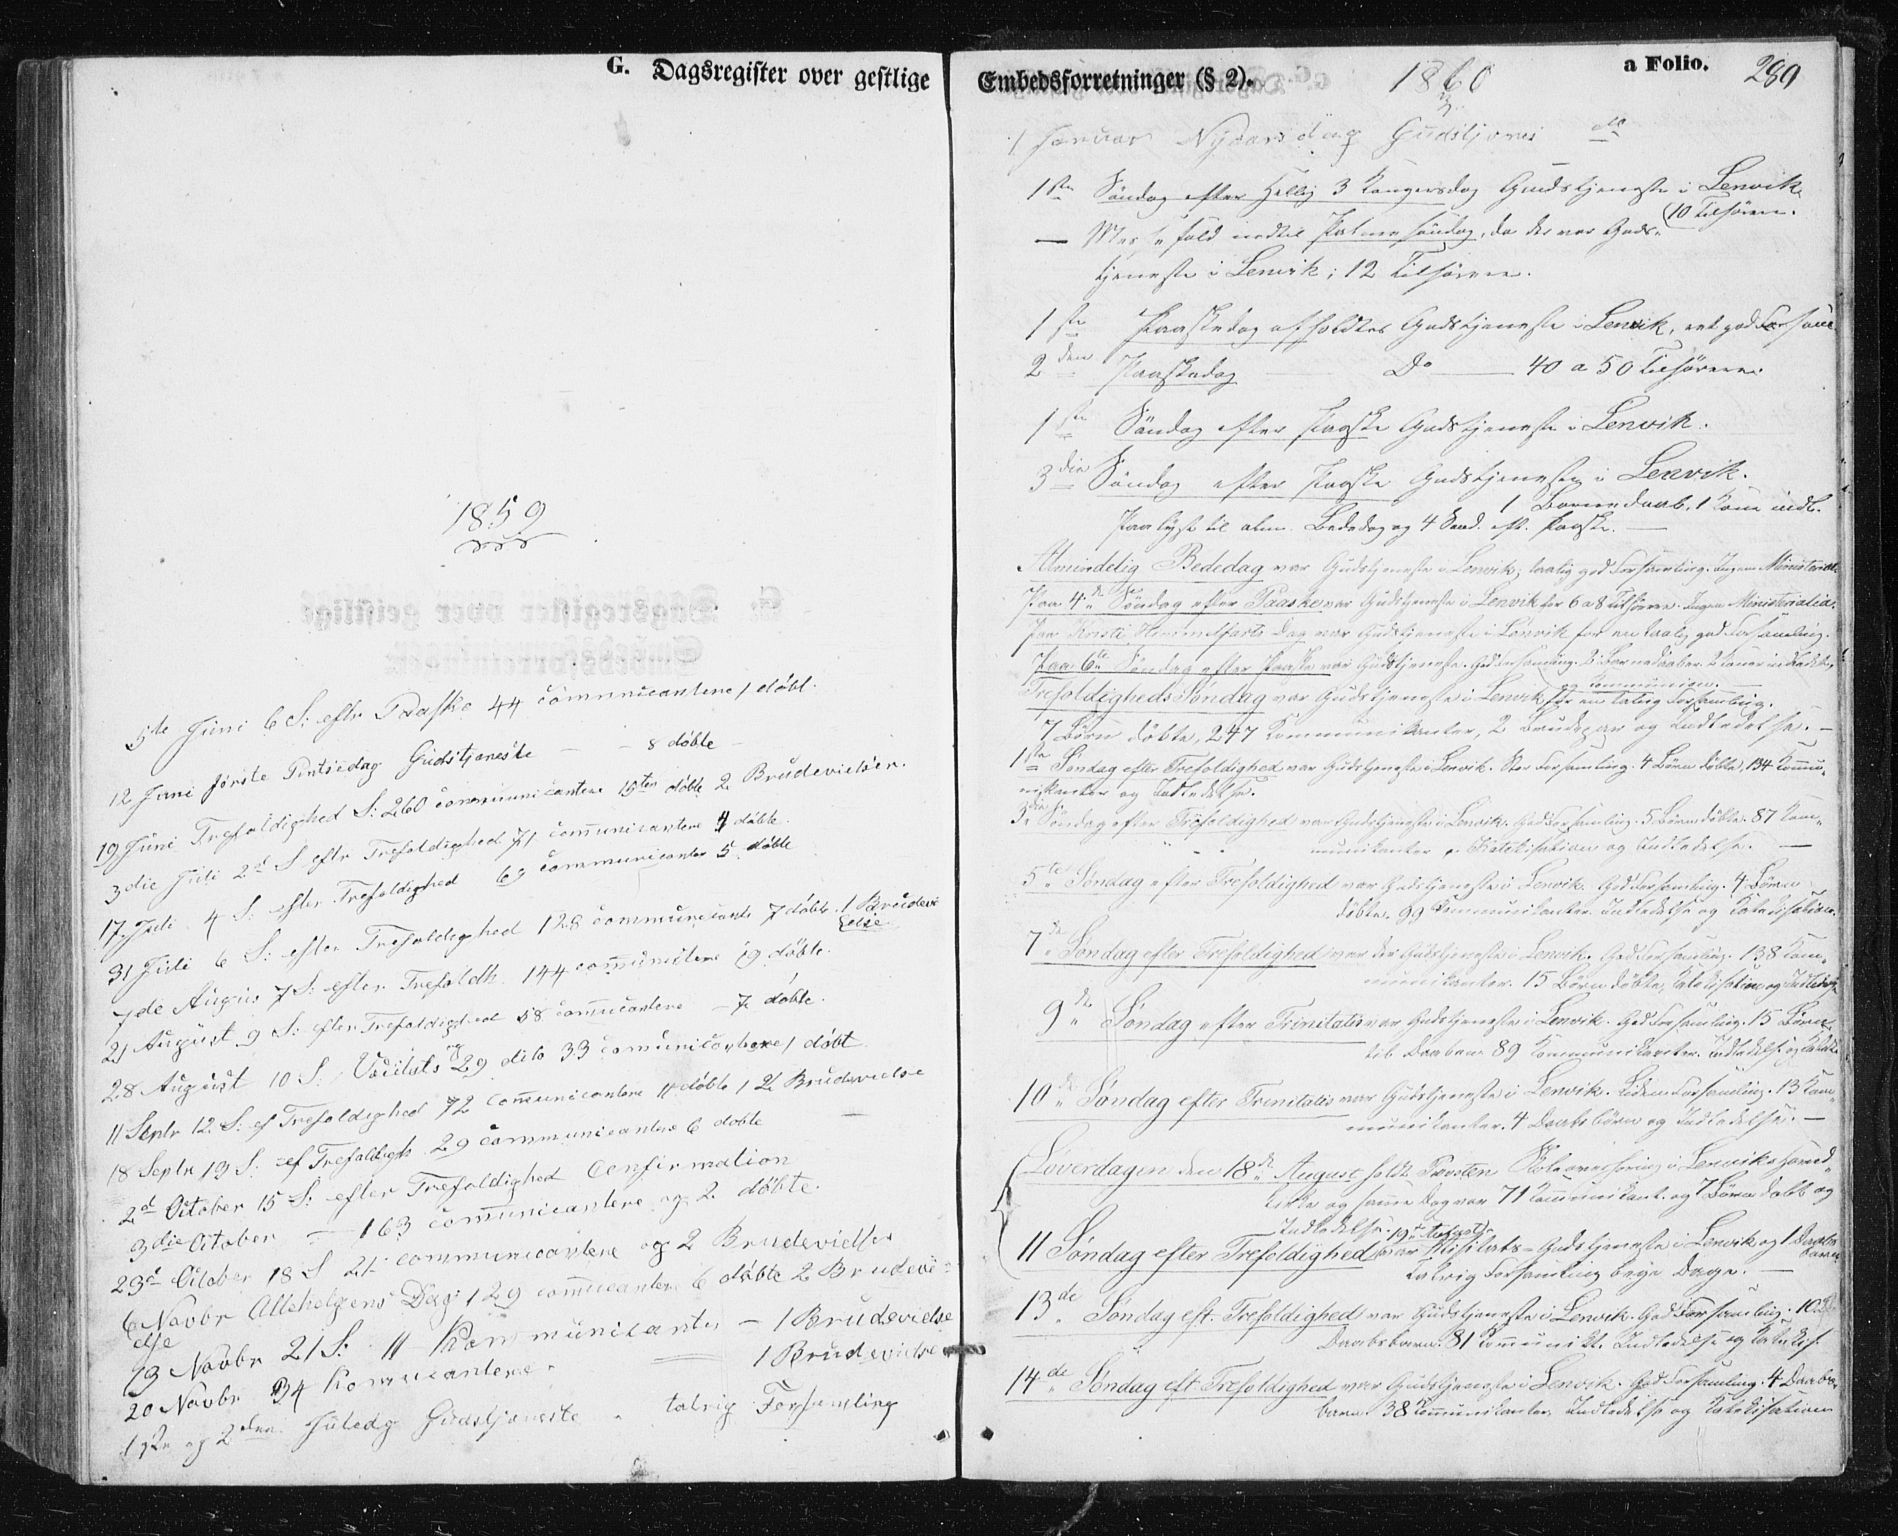 G. Dagsregister over gestlige
1859
5te Juni 6 S: eftr Paaske 44 communicantere 1 døbt.
12 Juni første Pintsedag Gudstjeneste — 8 døbte
19 Juni Trefoldighed S: 260 communicantere døbte 2 Brudevielser.
3die Juli 2d S eftr Trefoldighed 71 communicantere 4 døbte.
17 Juli 4 S: efter Trefoldighed 69 communicanter 5 døbte
31 Juli 6 S: efter Trefoldighed 128 communicante 7 døbte 1 Brudevi
else
7de Augus 7 S: efter Trefoldh. 144 19 døbte.
21 August 9 S: efter Trefoldighed 58 — 7 døbte.
28 August 10 S: og 29 dito 33 1 døbt
11 Septr 12 S: ef Trefoldighed 72 communicantere 11 døbte 2 Brudevielse
18 Septr 13 S: ef 29 communicantere 6 døbte
2d October 15 S: efter Trefoldighed Confirmation
3die October — 163 communicantere og 2 døbte.
23d October 18 S 21 communicantere og 2 Brudevielser
6 Novbr Allehelgens Dag 129 6 døbte 2 Brudevi=
else
13 Novbr 21 S: 11 Kommunicanter — 1 Brudevielse
20 Novbr 34 — 1 Brudevielse
1ste og 2den Juledg Gudstjeneste talrig Forsamling
Embedsforretninger (§ 2).
1860
a Folio. 289
1 Januar Nyaarsdag
1ste Søndag efter Hellig 3 Kongersdag Gudstjeneste i Lenvik
(10 Tilhørere.
— Messefald indtil Palmesøndag, da der var Guds-
tjeneste i Lenvik; 12 Tilhørere.
1ste Paaskedag afholdtes Gudstjeneste i Lenvik,
2den Paaskedag — Do — 40 a 50 Tilhørere.
1ste Søndag efter Paaske Gudstjeneste i Lenvik.
3die Søndag efter Paaske Gudstjeneste i Lenvik.
1 Barnedaab. 1 Kone indl.
til alm. Bededag og 4 Sønd. eft. Paaske. —
Almindelig Bededag var Gudstjeneste i Lenvik; talrig god Forsamling. Ingen
Paa 4de Søndag efter Paaske var Gudstjeneste i Lenvik for 6 a 8 Tilhørere. Ingen Ministerialia.
Paa Kristi Himmelfarts Dag var Gudstjeneste i Lenvik for en talrig god Forsamling.
Paa 6te Søndag efter Paaske var Gudstjeneste. God Forsamling. 2 Barnedaaber. 2 Koner
og Kommunion.
Trefoldigheds Søndag var Gudstjeneste i Lenvik for en talrig Forsamling.
7 Børn døbte, 247 Kommunikanter, 2 Brudepar og Indledelse. —
1ste Søndag efter Trefoldighed var Gudstjeneste i Lenvik. Stor Forsamling. 4 Børn døbte, 134 Kommu-
nikanter og Indledelse.
3die Søndag efter Trefoldighed var Gudstjeneste i Lenvik. God Forsamling. 5 Børn døbte. 87 Kom-
munikanter, Katekisation og Indledelse. —
5te Søndag efter Trefoldighed var Gudstjeneste i Lenvik. God Forsamling. 4 Børn
døbte. 99 Kommunikanter. Indledelse og Katekisation.
7de Søndag efter Trefoldighed var der Gudstjeneste i Lenvik. God Forsamling. 138 Kom-
munikanter. 15 Børn døbte, Katekisation og
9de Søndag efter Trinitatis var Gudstjeneste i Lenvik. God Forsamling. 15 Børn
til Daaben. 89 Kommunikanter. Indledelse og
10de Søndag efter Trinitatis var Gudstjeneste i Lenvik. Liden Forsamling. 13 Kom-
munikanter. 4 Daabsbørn og Indledelse. —
Løverdagen den 18de August holdt Provsten i Lenviks Hoved-
kirke og samme Dag var 71 Kommunikant. og 7 Børn døbt og
Indledelse.
11 Søndag efter Trefoldighed (19de August) var Visitats-Gudstjeneste i Lenvik og 1 Daabs-
barn.
Talrig Forsamling begge Dage. —
13de Søndag eft. Trefoldighed var Gudstjeneste i Lenvik. God Forsamling. 10
Daabsbørn. 81 Kommunik. Indledelse og Katekis.
14de Søndag eft. Trefoldighed var Gudstjeneste i Lenvik. God Forsamling. 4 Daabs-
børn. 38 Kommunikanter. Indledelse og Katekisation